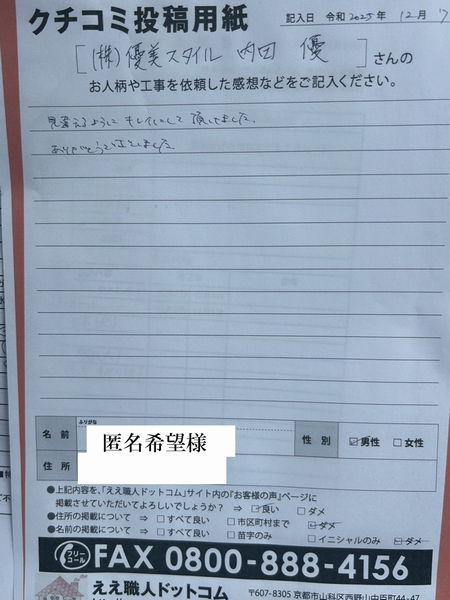 クチコミ投稿用紙 記入日 令和 2025年 12月 7
[(株)優美スタイル 内田 優]さんの
お人柄や工事を依頼した感想などをご記入ください。
見違えるように キレイにして 頂きました。
ありがとうございました。
ふりがな
名前 匿名希望様 性別 ☑男性 □女性
住所
●上記内容を、「ええ職人ドットコム」サイト内の『お客様の声』ページに
掲載させていただいてよろしいでしょうか? ⇒ ☑良い □ダメ
●住所の掲載について ⇒ □すべて良い □市区町村まで ☑ダメ
●名前の掲載について ⇒ □すべて良い □苗字のみ □イニシャルのみ ☑ダメ
フリーコール FAX 0800-888-4156
ええ職人ドットコム 〒607-8305 京都市山科区西野山中臣町44-47